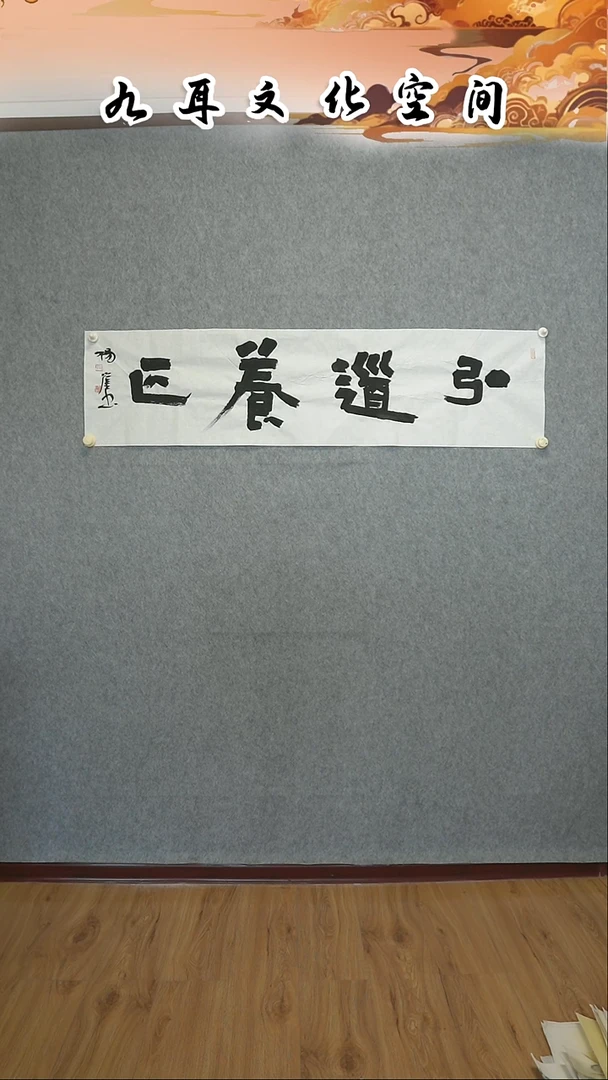 九耳文化空间
弘道養正
楊